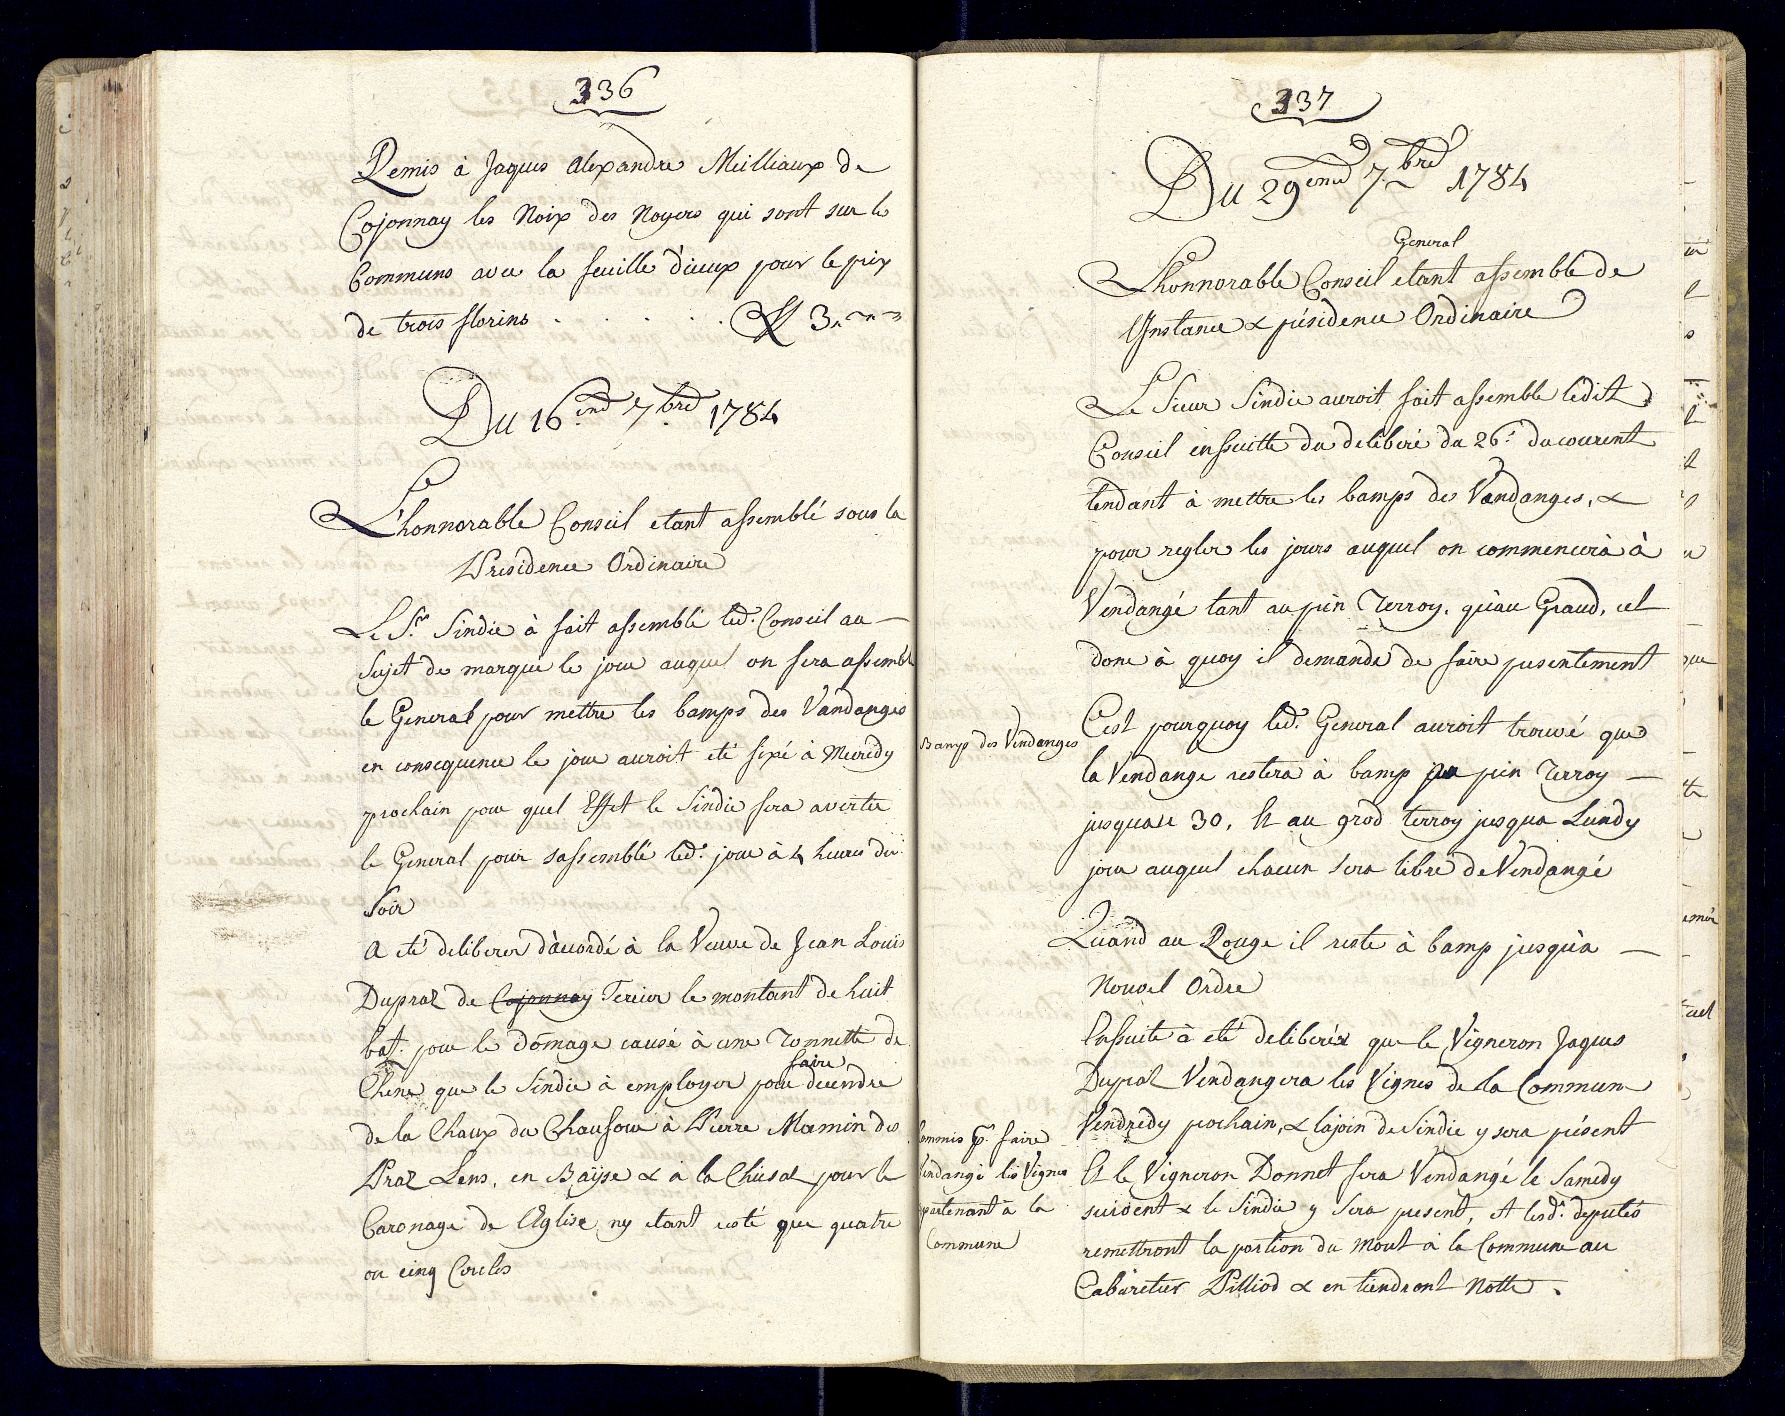 336
Remis à Jaques Alexandre Milliaux de
Cojonnay les Noix des Noyers qui sont sur les
Communs avec la feuille d'iceux pour le prix
de trois florins . . . . . ff 3.
Du 16.eme 7.bre 1784
L'honnorable Conseil etant assemblé sous la
Presidence Ordinaire
Le S.r Sindic à fait assemblé led. Conseil au
sujet de marque le jour auquel on sera assemblé
le General pour mettre les bamps des Vandanges
en consequence le jour auroit eté fixé à Mecredy
prochain pour quel Effet le Sindic fera avertir
le General pour sassemblé led. jour à 4 heures du
Soir
A eté deliberer d'acordé à la Veuve de Jean Louis
Dupraz de Cojonnay Tercier le montant de huit
bat. pour le domage causé à une Tonnette de
faire
Chene que le Sindic à employer pour decendre
de la Chaux du Chaufour à Pierre Mamin des
Praz Lens, en Baÿse & à la Chiésaz pour le
Caronage de l'Eglise ny etant resté que quatre
ou cinq Cercles
337
Du 29eme 7.bre 1784
General
L'honnorable Conseil etant assemblé de
l'Instance & présidence Ordinaire
Le Sieur Sindic auroit fait assemblé ledit
Conseil enssuitte du deliberé du 26.e du courent
tendant à mettre les bamps des Vandanges, &
pour regler les jours auquel on commencera à
Vendangé tant au pin Terroy, qu'au Grand, cet
donc à quoy il demande de faire presentement
Bamp des Vendanges
C'est pourquoy led. General auroit trouvé que
la Vendange restera à bamp au pin Terroy
jusquau 30, Et au grod terroy jusqua Lundy
jour auquel chacun sera libre de Vendangé
Quand au Rouge il reste à bamp jusqu'a
Nouvel Ordre
Commis p.r faire
Vendangé les Vignes
apartenant à la
Commune
Enssuite à eté deliberér que le Vigneron Jaques
Dupraz Vendangera les Vignes de la Commune
Vendredy prochain, & lajoin de Sindic y sera présent
Et le Vigneron Donnet fera Vendangé le Samedy
suivent & le Sindic y Sera present, Et lesd. deputés
remettront la portion du Mout à la Commune au
Cabaretier Pilliod & en tiendront Notte.